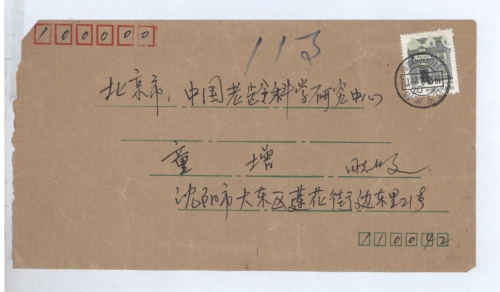 100000
113
北京市：中国老龄科学研究中心
童 增 收
沈阳市大东区莲花街边东里21号
110042